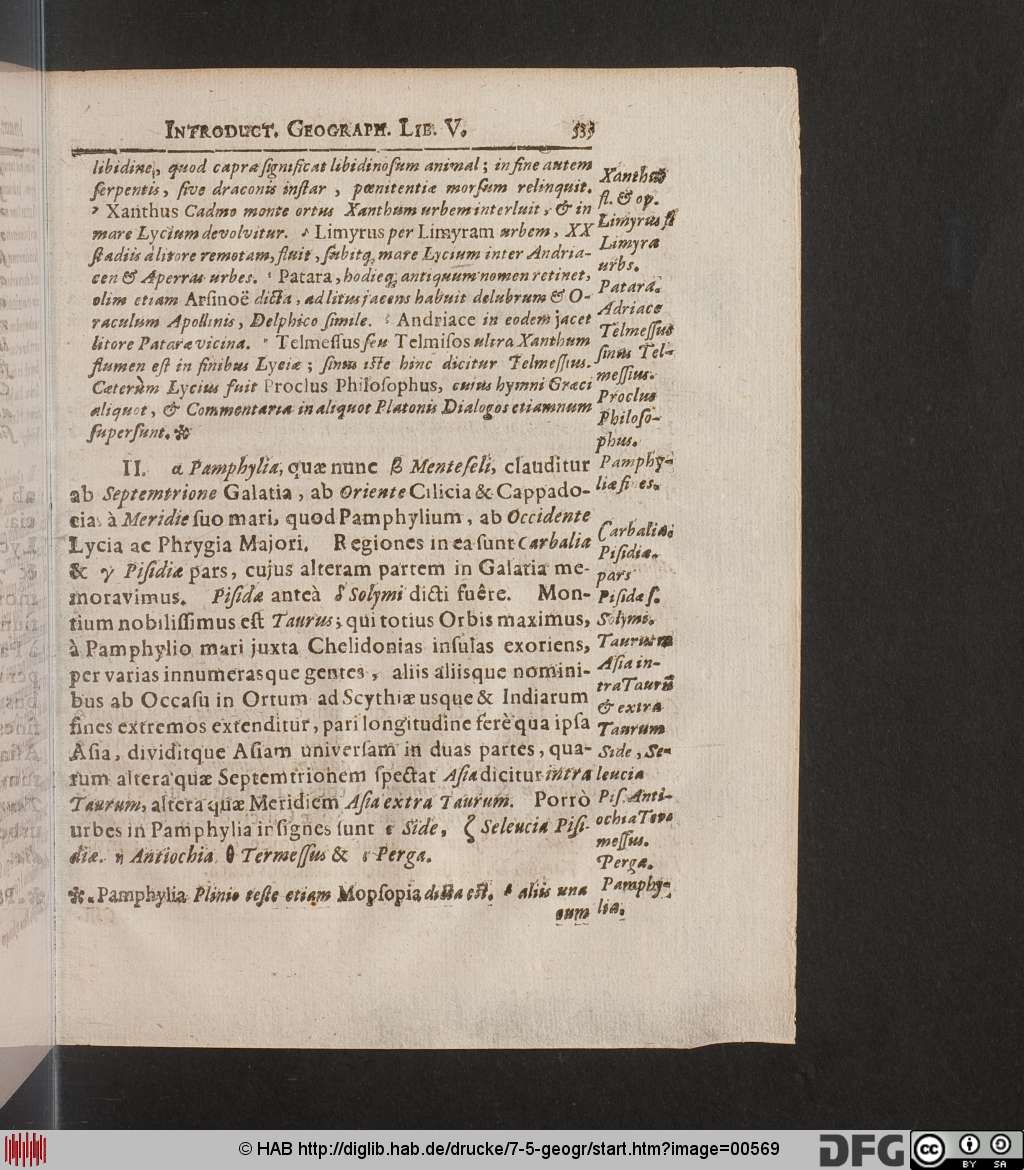 INTRODUCT. GEOGRAPH. LIB. V. 533
libidine, quod capræ significat libidinosum animal; in fine autem
serpentis, sive draconis instar, pœnitentiæ morsum relinquit.
Xanthus Cadmo monte ortus Xanthum urbem interluit, & in
mare Lycium devolvitur. Limyrus per Limyram urbem, XX
stadiis à litore remotam, fluit, subitq; mare Lycium inter Andria-
cen & Aperras urbes. Patara, hodieq; antiquum nomen retinet,
olim etiam Arsinoë dicta, ad litus jacens habuit delubrum & O-
raculum Apollinis, Delphico simile. Andriace in eodem jacet
litore Pataræ vicina. Telmessus seu Telmisos ultra Xanthum
flumen est in finibus Lyciæ; sinus iste hinc dicitur Telmessius.
Cæterùm Lycius fuit Proclus Philosophus, cujus hymni Græci
aliquot, & Commentaria in aliquot Platonis Dialogos etiamnum
supersunt. ✻
II. α Pamphylia, quæ nunc β Menteseli, clauditur
ab Septemtrione Galatia, ab Oriente Cilicia & Cappado-
cia, à Meridie suo mari, quod Pamphylium, ab Occidente
Lycia ac Phrygia Majori. Regiones in ea sunt Carbalia
& γ Pisidiæ pars, cujus alteram partem in Galatia me-
moravimus. Pisidæ anteà δ Solymi dicti fuêre. Mon-
tium nobilissimus est Taurus; qui totius Orbis maximus,
à Pamphylio mari juxta Chelidonias insulas exoriens,
per varias innumerasque gentes, aliis aliisque nomini-
bus ab Occasu in Ortum ad Scythiæ usque & Indiarum
fines extremos extenditur, pari longitudine ferè qua ipsa
Asia, dividitque Asiam universam in duas partes, qua-
rum altera quæ Septemtrionem spectat Asia dicitur intra
Taurum, altera quæ Meridiem Asia extra Taurum. Porrò
urbes in Pamphylia insignes sunt ε Side, ζ Seleucia Pisi-
diæ. η Antiochia θ Termessus & ι Perga.
✻. Pamphylia Plinio teste etiam Mopsopia dicta est. aliis una
cum
Xanthus
fl. & op.
Limyrus fl
Limyra
urbs.
Patara.
Adriace
Telmessus
sinus Tel-
messius.
Proclus
Philoso-
phus.
Pamphy-
liæ fines.
Carbalia.
Pisidiæ.
pars
Pisidæ s.
Solymi.
Taurus m
Asia in-
tra Taurū
& extra
Taurum
Side, Se-
leucia
Pis. Anti-
ochia Ter-
messus.
Perga.
Pamphy-
lia.
© HAB http://diglib.hab.de/drucke/7-5-geogr/start.htm?image=00569
DFG
cc BY SA